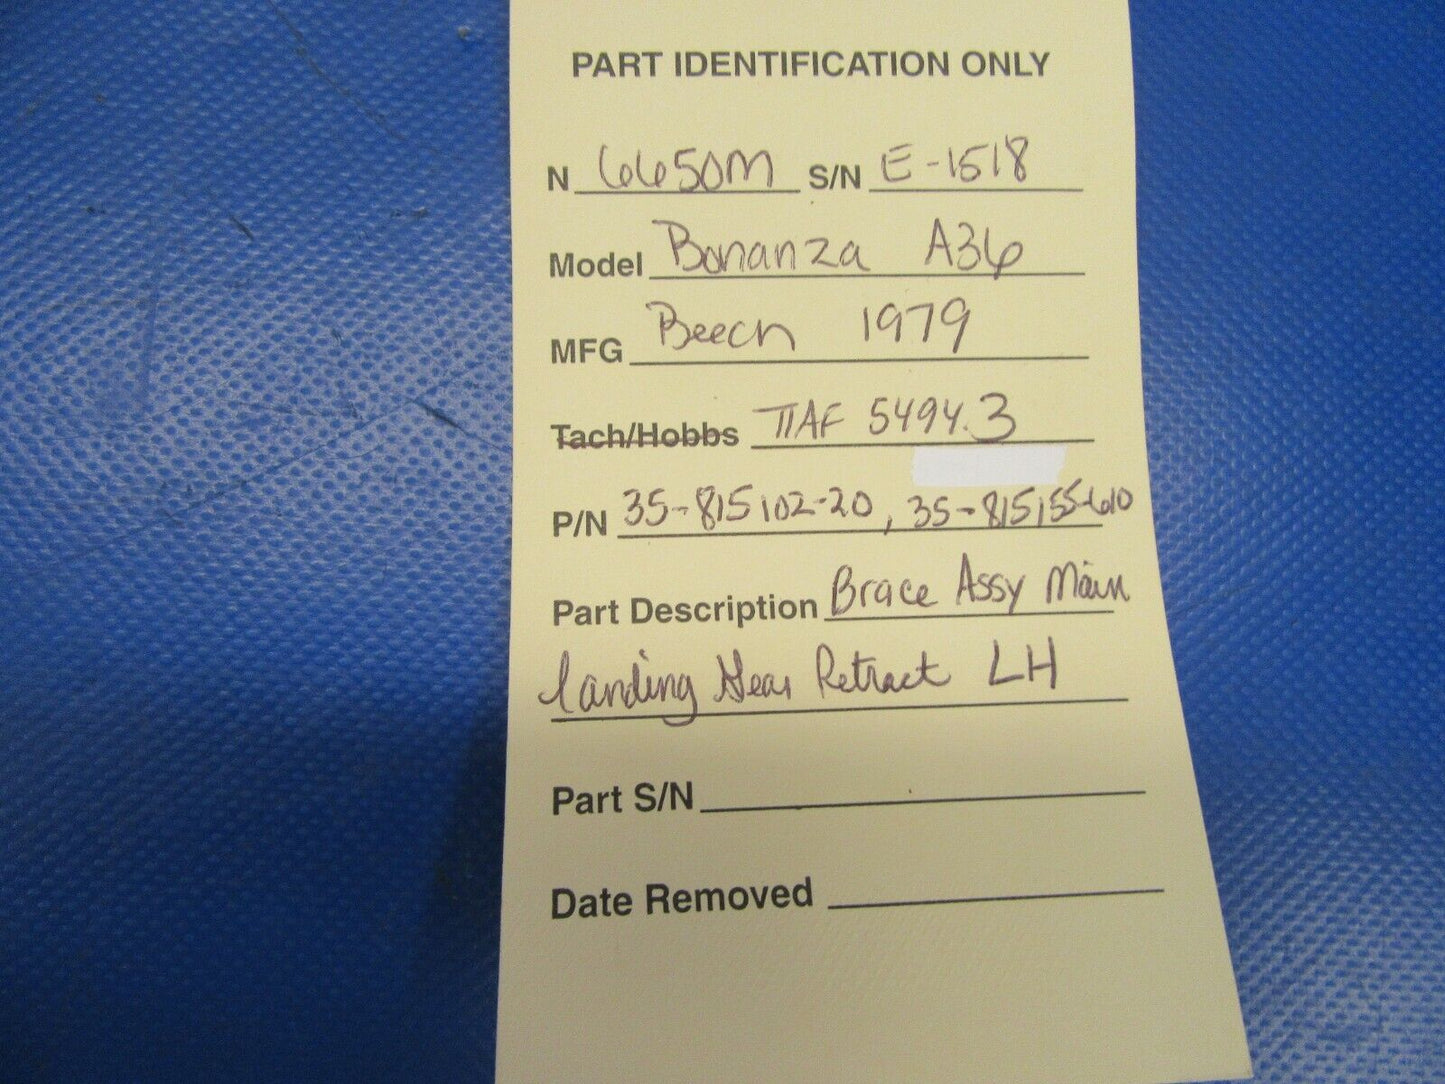 PART IDENTIFICATION ONLY
N 6650M S/N E-1518
Model Bonanza A36
MFG Beech 1979
Tach/Hobbs TTAF 5494.3
P/N 35-815102-20, 35-815155-610
Part Description Brace Assy Main
Landing Gear Retract LH
Part S/N
Date Removed